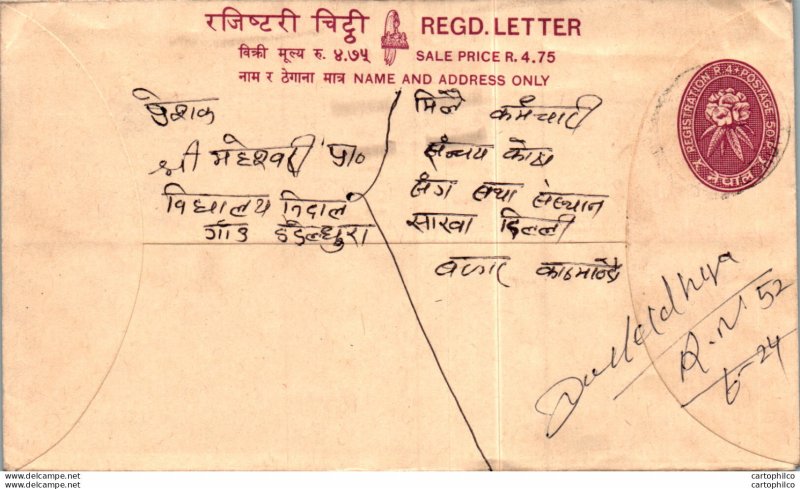 रजिष्टरी चिट्ठी REGD. LETTER
बिक्री मूल्य रु. ४.७५ SALE PRICE R. 4.75
नाम र ठेगाना मात्र NAME AND ADDRESS ONLY
REGISTRATION R.4+POSTAGE 50P.
नेपाल
प्रेशक
श्री महेश्वरी प्रा०
विद्यालय निदाल
गाउ डडेल्धुरा
मिले कर्मचारी
संन्चय कोष
सस्थान
साखा दिल्ली
बजार काठमाण्डौ
R.N 52
6-24
www.delcampe.net
cartophilco
cartophilco
www.delcampe.net
cartophilco
cartophilco